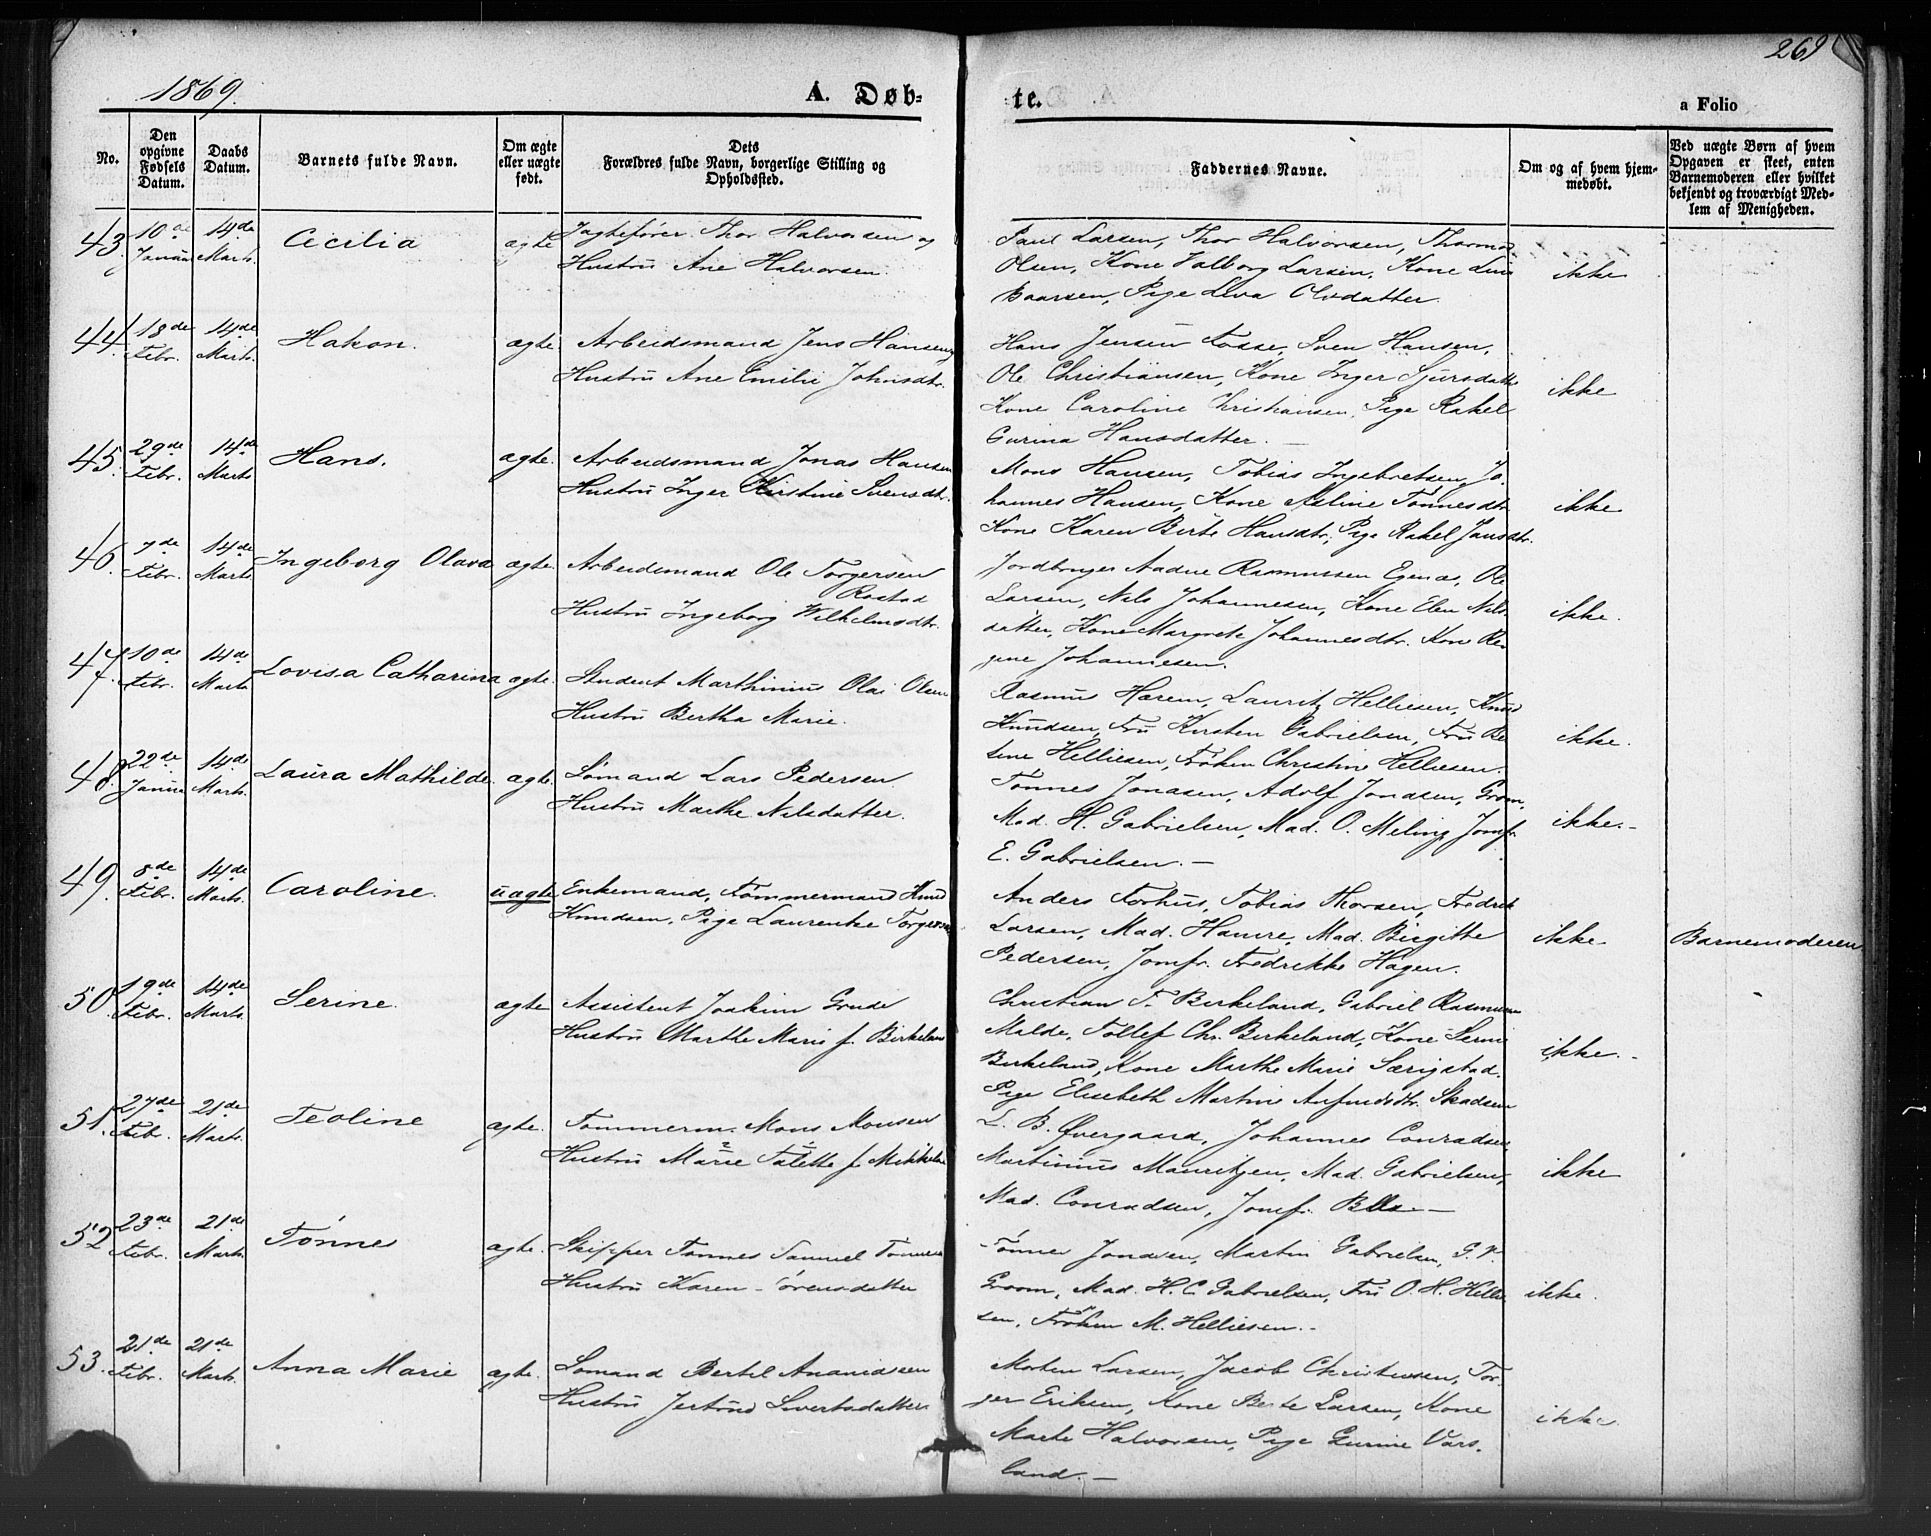 1869.
A. Døb-
te.
269
a Folio
No.
Den opgivne Fødsels Datum.
Daabs Datum.
Barnets fulde Navn.
Om ægte eller uægte født.
Dets Forældres fulde Navn, borgerlige Stilling og Opholdssted.
Faddernes Navne.
Om og af hvem hjemmedøbt.
Ved uægte Børn af hvem Opgaven er skeet, enten Barnemoderen eller hvilket bekjendt og troværdigt Medlem af Menigheden.
43. 10de Januar 14de Marts. Cecilia ægte
Jagtefører Thor Halvorsen og
Hustru Ane Halvorsen
Paul Larsen, Thor Halvorsen, Thormod
Olsen, Kone Valborg Larsen, Kone Lina
Baarsen, Pige Lena Olsdatter.
ikke
44. 18de Febr. 14de Marts. Hakon. ægte.
Arbeidsmand Jens Hansen og
Hustru Ane Emilie Johnsdtr.
Hans Jensen Fosse, Sven Hansen,
Ole Christiansen, Kone Inger Sjursdatter
Kone Caroline Christiansen, Pige Rakel
Gurina Hansdatter. —
ikke
45. 29de Febr. 14de Marts Hans. ægte.
Arbeidsmand Jonas Hansen
Hustru Inger Kirstine Svensdtr.
Mons Hansen, Tobias Ingebretsen, Jo-
hannes Hansen, Kone Asline Tønnesdtr.
Kone Karen Birte Hansdtr, Pige Rakel Jansdtr.
ikke
46. 7de Febr. 14de Marts. Ingeborg Olava ægte.
Arbeidsmand Ole Torgersen
Rostad
Hustru Ingeborg Wilhelmsdtr.
Jordbruger Aadne Rasmussen Egenæs, Ole
Larsen, Nils Johannesen, Kone Elen Nils-
datter, Kone Margrete Johannesdtr. Kone Re-
gine Johannesen.
ikke.
47. 10de Febr. 14de Marts Lovisa Catharina ægte.
Student Marthinius Olai Olsen
Hustru Bertha Marie.
Rasmus Harem, Lauritz Helliesen, Knud
Knudsen, Fru Kirsten Gabrielsen, Fru Be-
sine Helliesen, Frøken Christine Helliesen.
ikke.
48. 22de Januar 14de Marts. Laura Mathilde. ægte.
Sømand Lars Pedersen
Hustru Marthe Nilsdatter.
Tønnes Jonasen, Adolf Jonasen, Groom,
Mad. H. Gabrielsen, Mad. O. Meling, Jomfr.
E. Gabrielsen. —
ikke. -
49. 8de Febr. 14de Marts. Caroline. uægte
Enkemand, Tømmermand Knud
Knudsen, Pige Laurentse Torgersen
Anders Forhus, Tobias Thorsen, Fredrik
Larsen, Mad. Hamre, Mad. Birgitte
Pedersen, Jomfr. Fredrikke Hagen.
ikke Barnemoderen
50. 19de Febr. 14de Marts. Serine. ægte
Assistent Joakim Grude
Hustru Marthe Marie f. Birkeland
Christian T. Birkeland, Gabriel Rasmussen
Malde, Tollef Chr. Birkeland, Kone Serine
Birkeland, Kone Marthe Marie Særigstad.
Pige Elisebeth Martine Asmundsdtr. Skadsem
ikke. -
51. 27de Febr. 21de Marts. Teoline ægte.
Tømmerm. Mons Monsen
Hustru Marie Talette f. Mikkelsen
L. B. Øvergaard, Johannes Conradsen,
Martinius Mauritzen, Mad. Gabrielsen,
Mad. Conradsen, Jomfr.
ikke
52 23de Febr. 21de Marts. Tønnes ægte.
Skipper Tønnes Samuel Tønnesen
Hustru Karen Sørensdatter
Tønnes Jonasen, Martin Gabrielsen, G. V.
Groom, Mad. H. C. Gabrielsen, Fru O. H. Hellie-
sen, Frøken M. Helliesen. -
ikke.
53. 21de Febr. 21de Marts. Anna Marie ægte.
Sømand Bertel Ananiassen
Hustru Jertrud Sivertsdatter
Morten Larsen, Jacob Christensen, Tor-
ger Eriksen, Kone Berte Larsen, Kone
Marte Halvorsen, Pige Gurine Vars-
land. —
ikke.